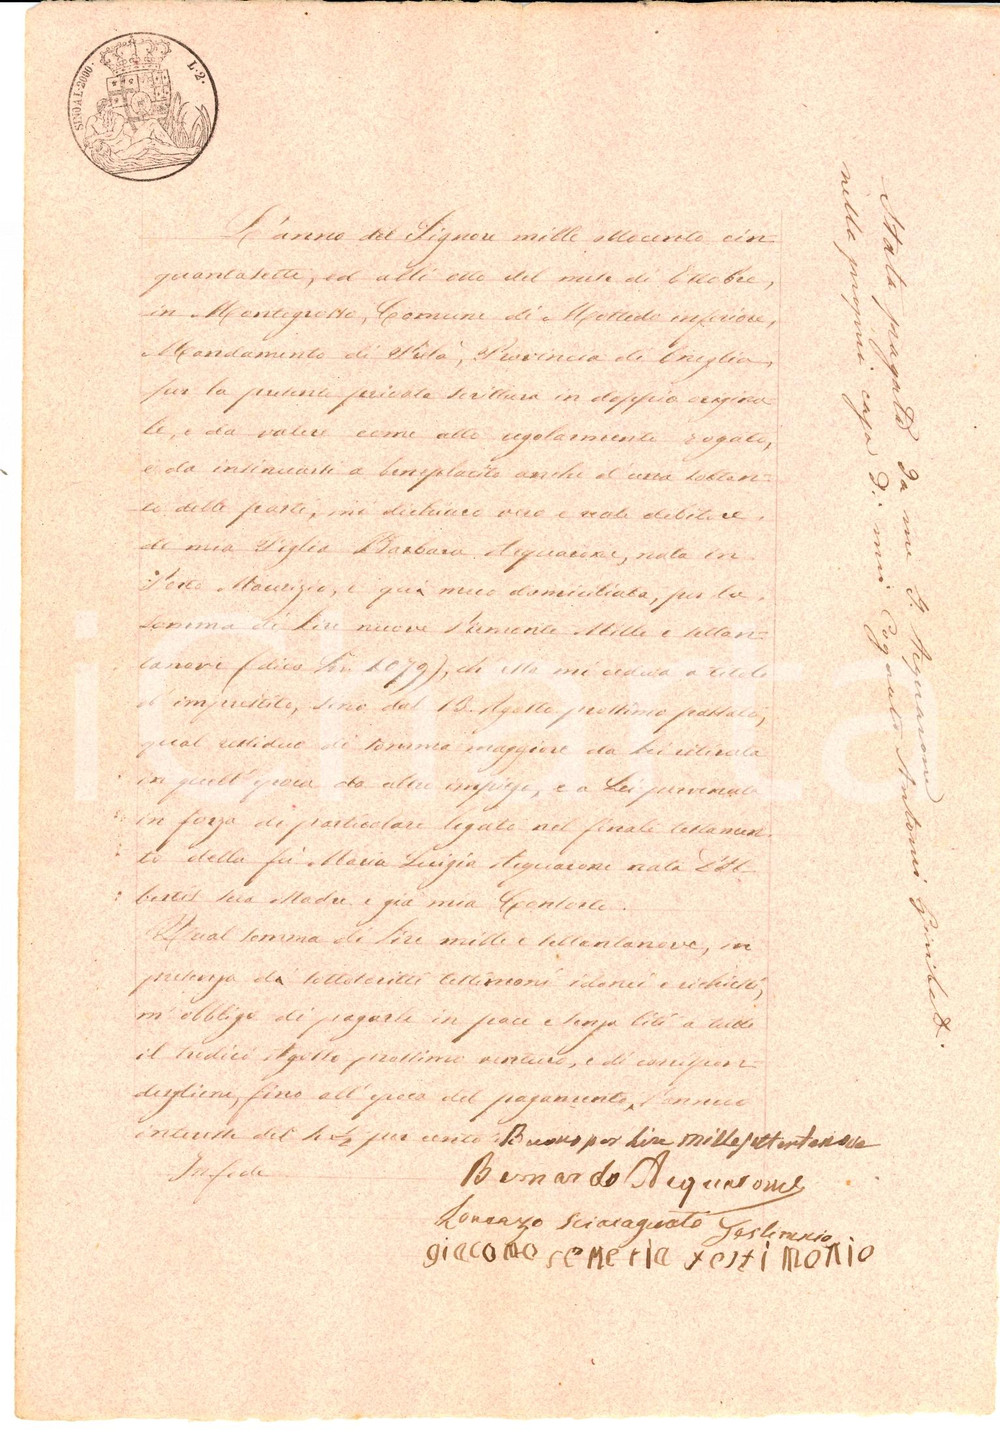 SINO A L. 2000.
L. 2.
L'anno del Signore mille ottocento cin-
quantasette, ed alli otto del mese di Ottobre,
in Montegrosso, Comune di Moltedo inferiore,
Mandamento di Prelà, Provincia di Oneglia,
per la presente privata scrittura in doppio origina-
le, e da valere come atto regolarmente rogato,
e da insinuarsi a beneplacito anche d'una soltan-
to delle parti, mi dichiaro vero e reale debitore
di mia Figlia Barbara Acquarone, nata in
Porto Maurizio, e quà meco domiciliata, per la
somma di Lire nuove Piemonte Mille e settan-
tanove (dico Ln 1079), che essa mi cedeva a titolo
d'imprestito, sino dal 13 Agosto prossimo passato,
qual residuo di somma maggiore da lei ritirata
in quell'epoca da altro impiego, e a Lei pervenuta
in forza di particolare legato nel finale testamen-
to della fù Maria Luigia Acquarone nata D'Al-
bertis sua Madre e già mia Consorte.
Qual somma di Lire mille e settantanove, in
presenza dà sottoscritti testimoni idonei e richiesti,
m'obbligo di pagarle in pace e senza liti a tutto
il tredici Agosto prossimo venturo, e di corrispon-
dergliene, fino all'epoca del pagamento, l'annuo
interesse del per cento. Buono per lire mille settantanove
In fede
Bernardo Acquarone
Lorenzo Testimonio
giacomo semeria testimonio
Stata pagata da me G. Acquarone
nella propria casa di mio Cognato Antonio